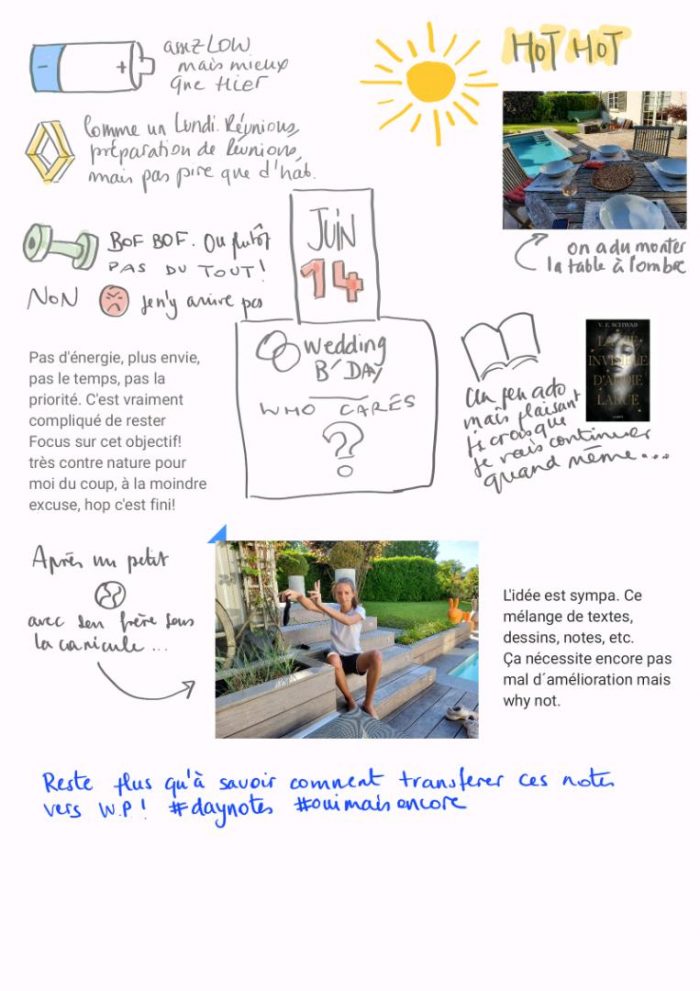 assez LOW
mais mieux
que Hier
HOT HOT
Comme un Lundi. Réunions,
préparation de Réunions,
mais pas pire que d'hab.
on a du monter
la table à l'ombre
BOF BOF. Ou plutôt
PAS DU TOUT!
NON
Je n'y arrive pas
JUIN
14
Wedding
B'DAY
WHO CARES
?
V. E. SCHWAB
LA VIE
INVISIBLE
D'ADDIE
LARUE
Un peu ado
mais plaisant
je crois que
je vais continuer
quand même...
Pas d'énergie, plus envie,
pas le temps, pas la
priorité. C'est vraiment
compliqué de rester
Focus sur cet objectif!
très contre nature pour
moi du coup, à la moindre
excuse, hop c'est fini!
Après un petit
avec son frère sous
la canicule...
L'idée est sympa. Ce
mélange de textes,
dessins, notes, etc.
Ça nécessite encore pas
mal d´amélioration mais
why not.
Reste plus qu'à savoir comment transferer ces notes
vers W.P! #daynotes #ouimaisencore